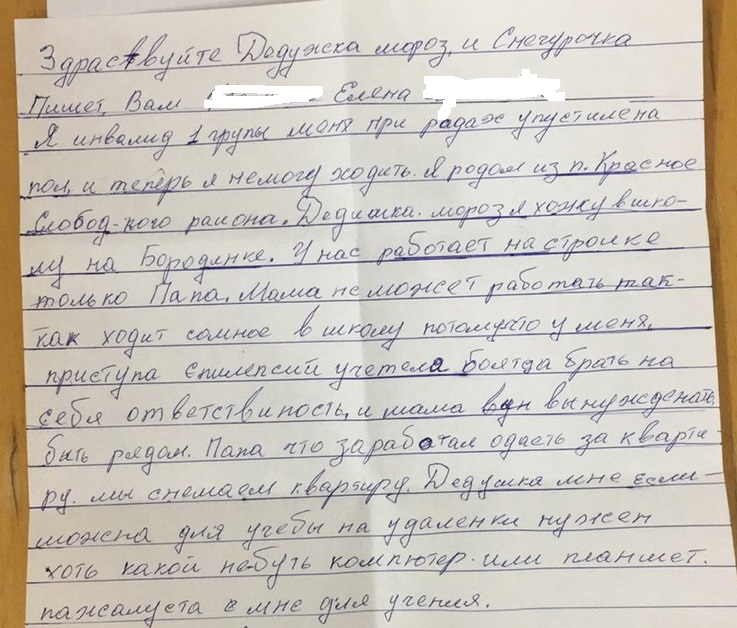 Здраствуйте Дедужска мороз, и Снегурочка
Пишет, Вам Елена
Я инвалид 1 групы меня при радах упустилена
пол, и теперь я немогу ходить. Я родом из п. Красное
Слобод-кого раиона. Дедишка. мороз я хожу в шко-
лу на Бородянке. У нас работает на строике
только Папа. Мама не может работать так-
как ходит сомное в школу потомучто у меня,
приступа Епилепсий учетела боятда брать на
себя ответствиность, и мама вынужденать
быть рядом. Папа что заработал одасть за кварти-
ру. мы снемаем квартиру. Дедушка мне если-
можна для учебы на удаленки нужен
хоть какой небуть компютер-или планшет.
пажалуста мне для учения.